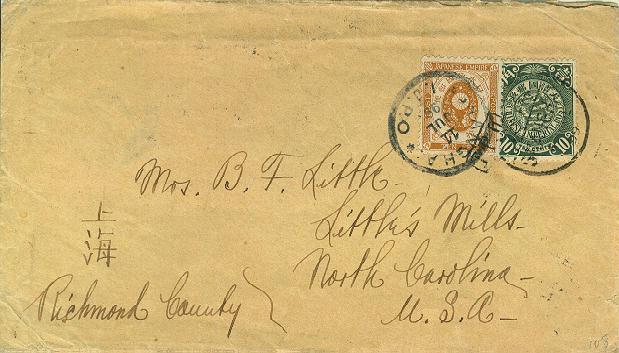 JAPANESE EMPIRE
10 10
SHANGHAI
I.J.P.O
Mrs. B. F. Little
Little's Mills.
上海
North Carolina
Richmond County
U.S.A
108